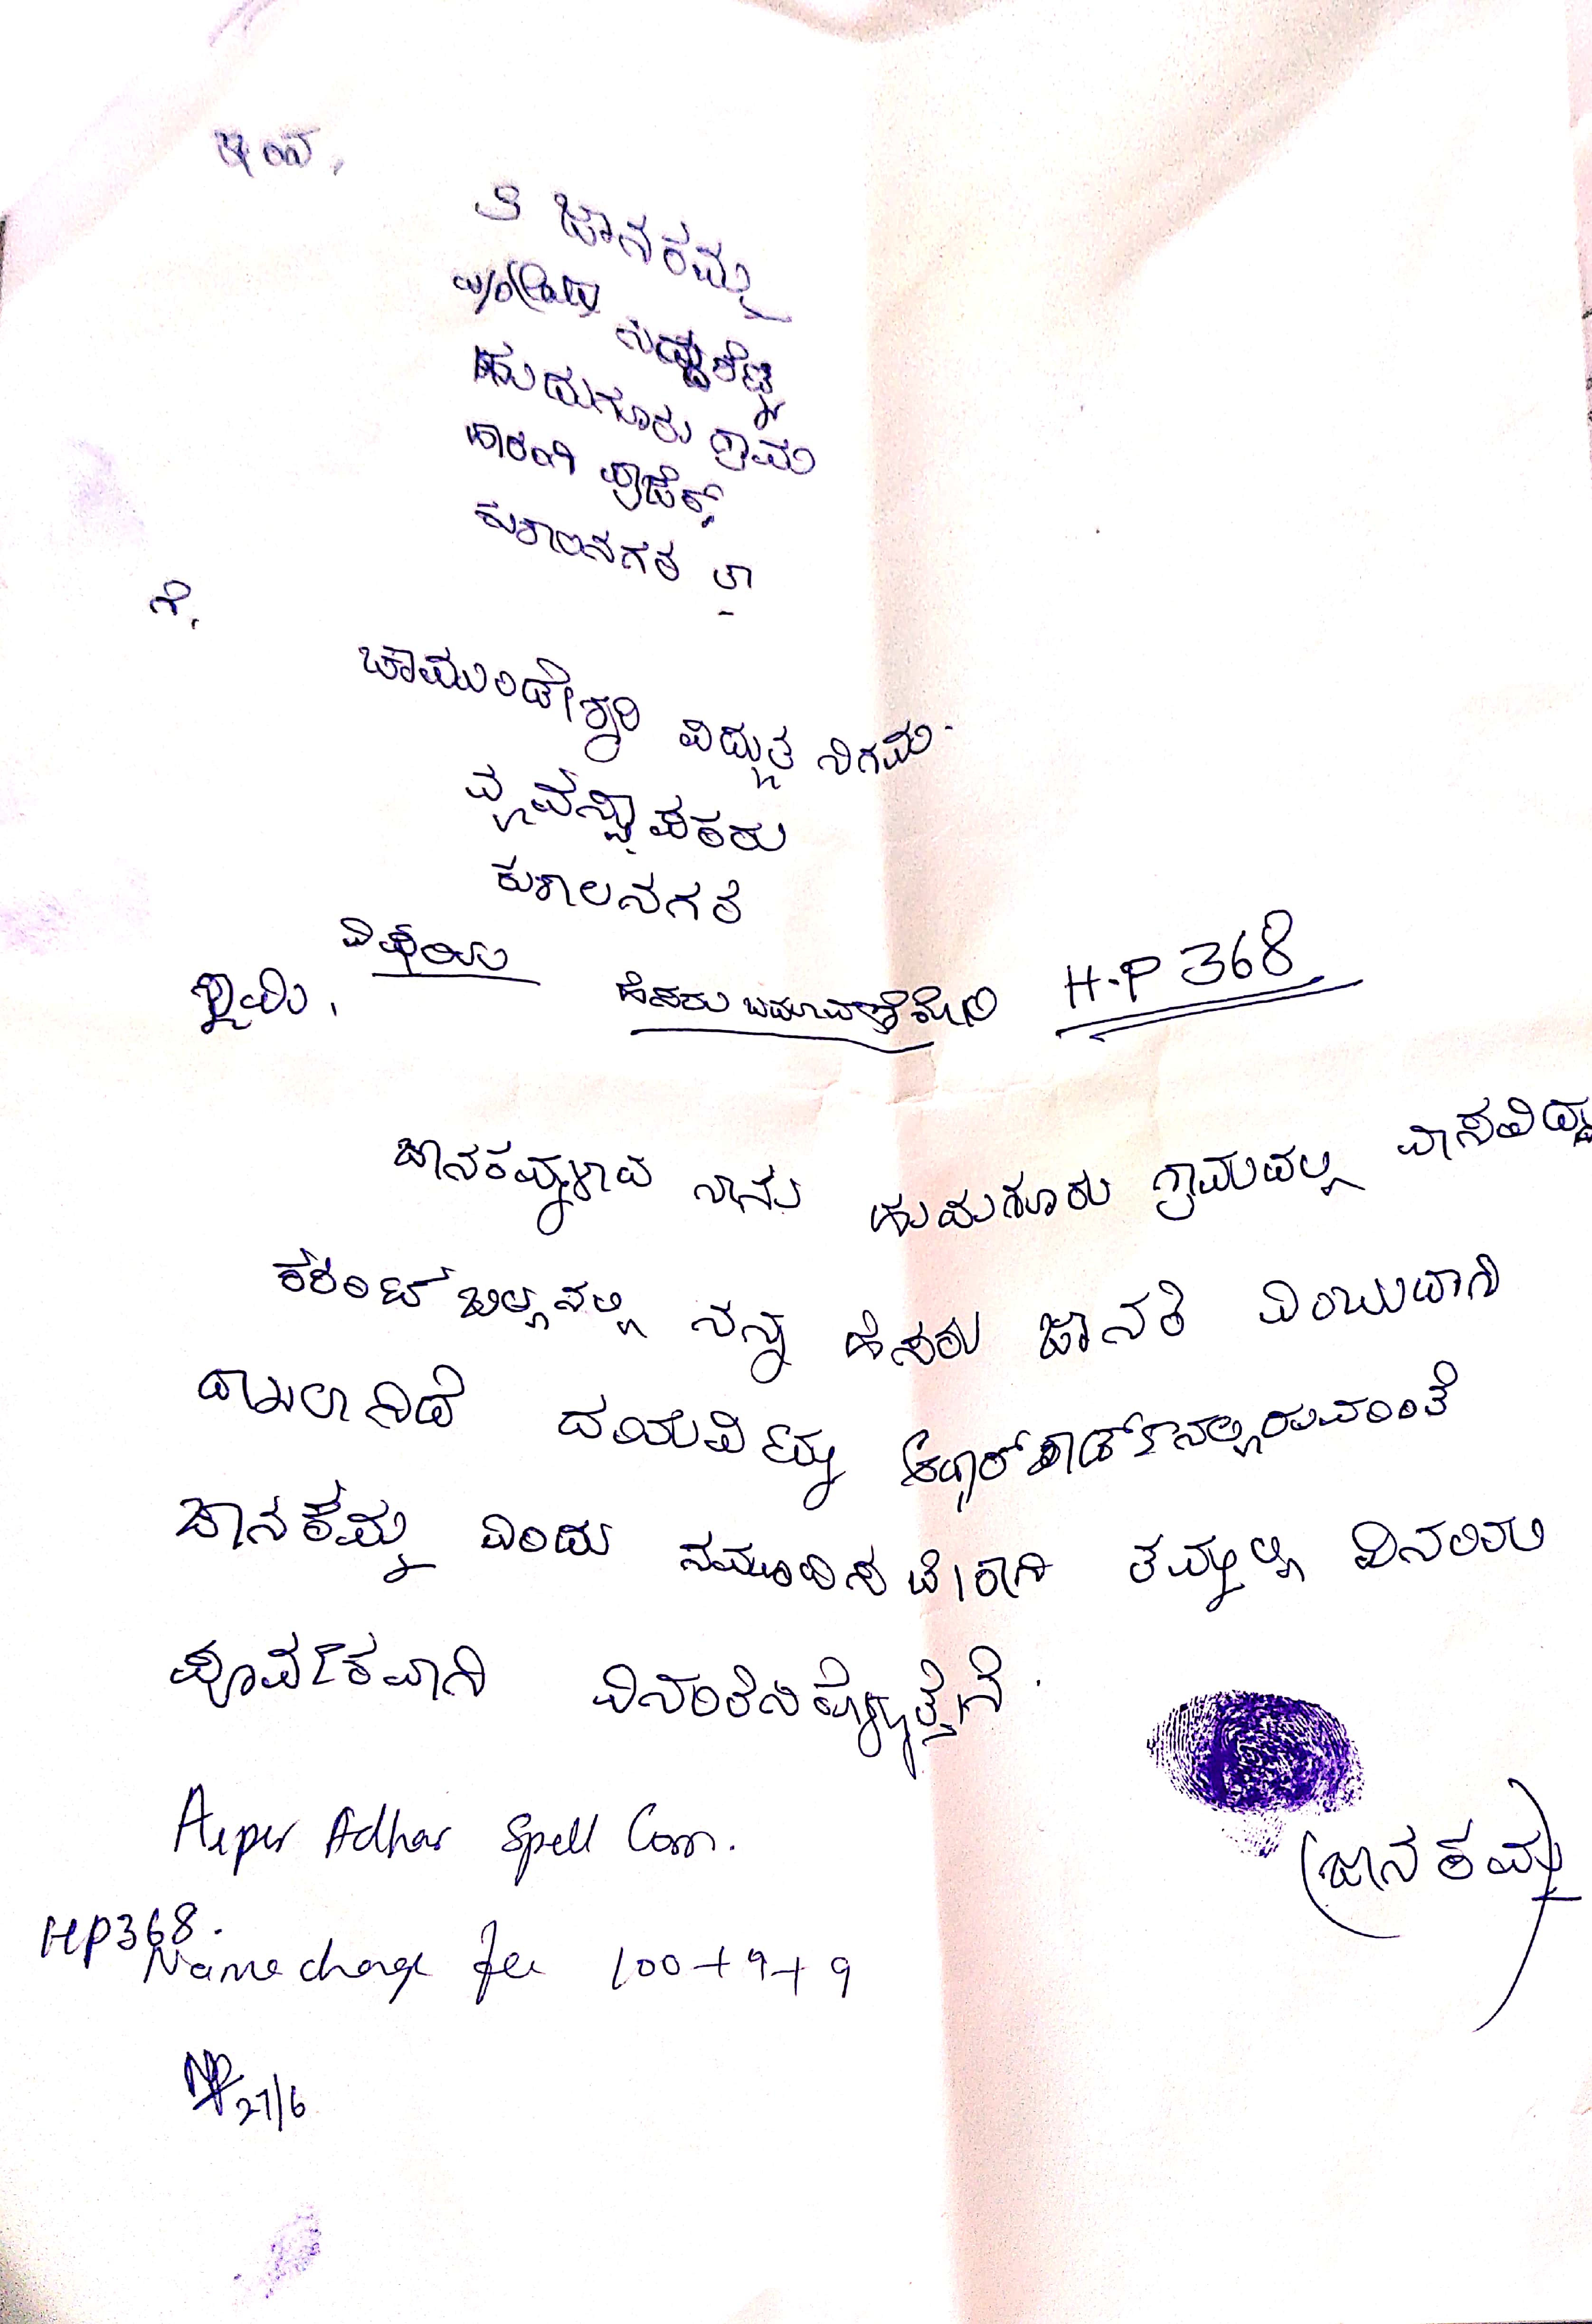 ಇಂದ,
ಶ್ರೀ ಜಾನಕಮ್ಮ
ಸಿದ್ದಶೆಟ್ಟಿ
ಹುದುಗೂರು ಗ್ರಾಮ
ಹಾರಂಗಿ ಪ್ರಾಜೆಕ್ಟ್
ಕುಶಾಲನಗರ ತಾ
ಗೆ,
ಚಾಮುಂಡೇಶ್ವರಿ ವಿದ್ಯುತ್ ನಿಗಮ.
ವ್ಯವಸ್ಥಾಪಕರು
ಕುಶಾಲನಗರ
ವಿಷಯ
ಸ್ವಾಮಿ, ಹೆಸರು ಬದಲಾವಣೆ ಕೋರಿ H.P 368
ಜಾನಕಮ್ಮಳಾದ ನಾನು ಹುದುಗೂರು ಗ್ರಾಮದಲ್ಲಿ ವಾಸವಿದ್ದು
ಕರೆಂಟ್ ಬಿಲ್ಲಿನಲ್ಲಿ ನನ್ನ ಹೆಸರು ಜಾನಕಿ ಎಂಬುದಾಗಿ
ದಾಖಲಾಗಿದೆ ದಯವಿಟ್ಟು ಆಧಾರ್ ಕಾರ್ಡ್‌ನಲ್ಲಿರುವಂತೆ
ಜಾನಕಮ್ಮ ಎಂದು ನಮೂದಿಸ ಬೇಕಾಗಿ ತಮ್ಮಲ್ಲಿ ವಿನಯ
ಪೂರ್ವಕವಾಗಿ ವಿನಂತಿಸಿಕೊಳ್ಳುತ್ತೇನೆ.
As per Adhar Spell Corr.
(ಜಾನಕಮ್ಮ)
HP368.
Name change fee 100+9+9
27/6